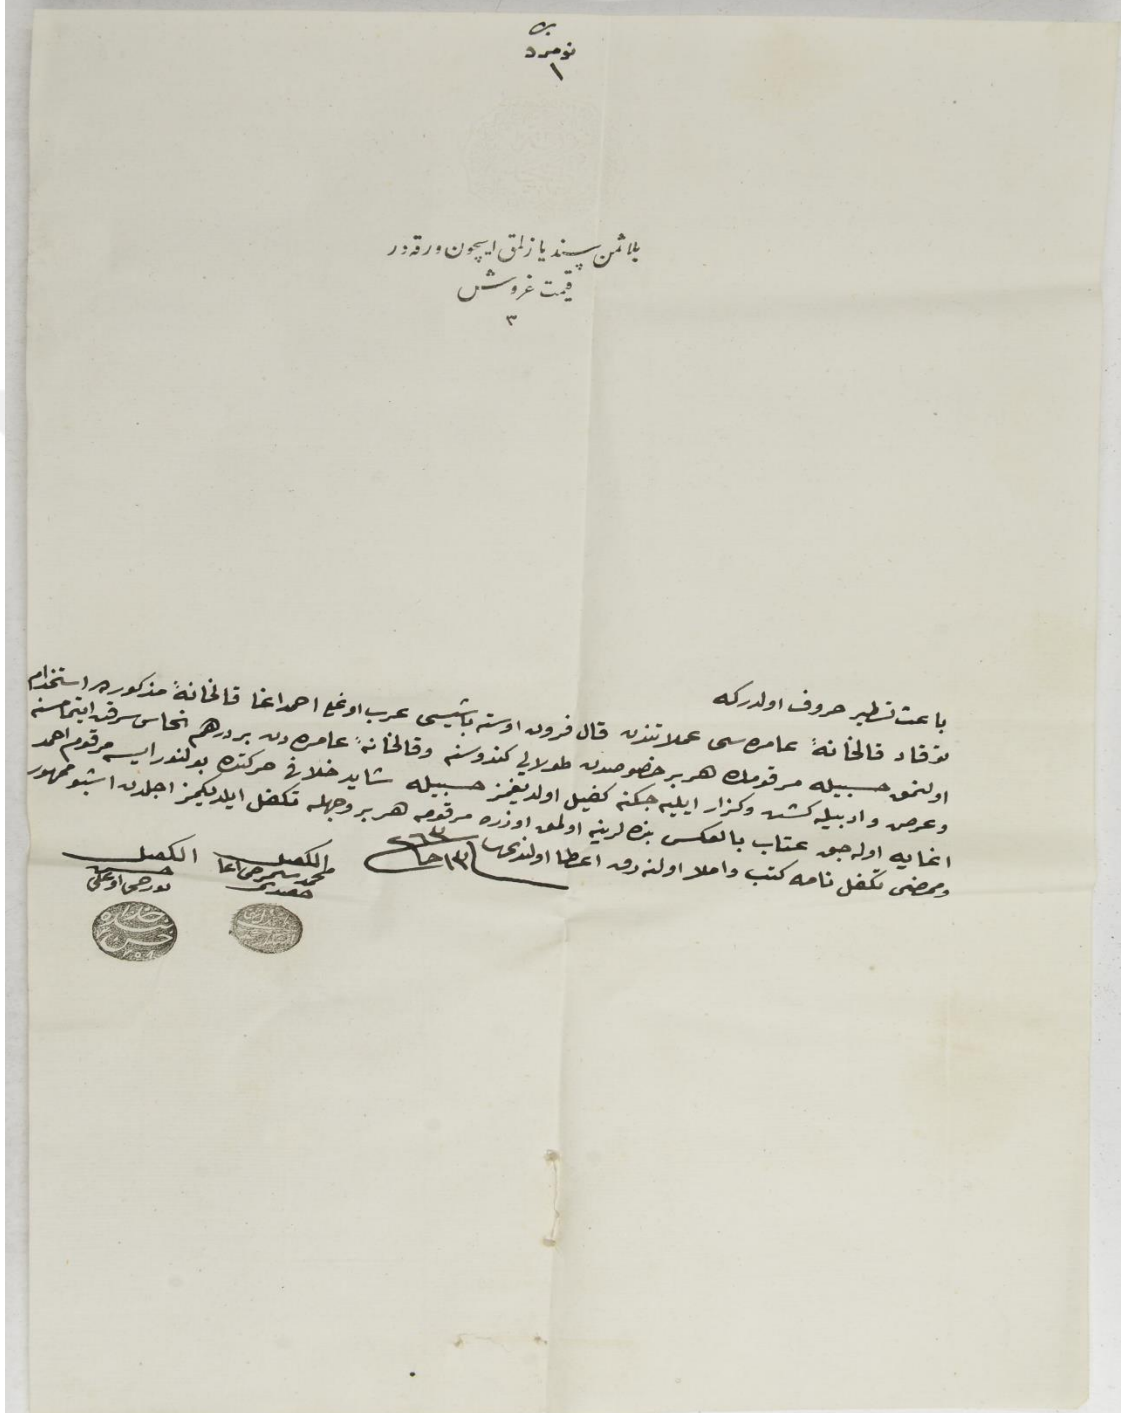 نومرو
١
بلا ثمن سند يازلمق ايچون ورقه در
قيمت غروش
٣
باعث تسطير حروف اولدركه
توقاد قالخانهٔ عامره سى عملاتندن قال فرون اوسته باشيسى عرب اوغلى احمد اغا قالخانهٔ مذكوره ده استخدام
اولنمق حسبيله مرقومك هر بر خصوصدن طولايى كندوسنه وقالخانهٔ عامره دن بر درهم نحاس سرقت ايتمامسنه
وعرض وادبيله كشت وكزار ايليه جكنه كفيل اولديغمز حسبيله شايد خلافى حركتده بولنور ايسه مرقوم احمد
اغايه اوله جق عتاب بالعكس بزه لرينه اولمق اوزره مرقومه هر بر وجهله تكفل ايلديكمز اجلدن اشبو ممهور
وممضى تكفل نامه كتب واملا اولنه رق اعطا اولندى
الكفيل
محمد اغا
الكفيل